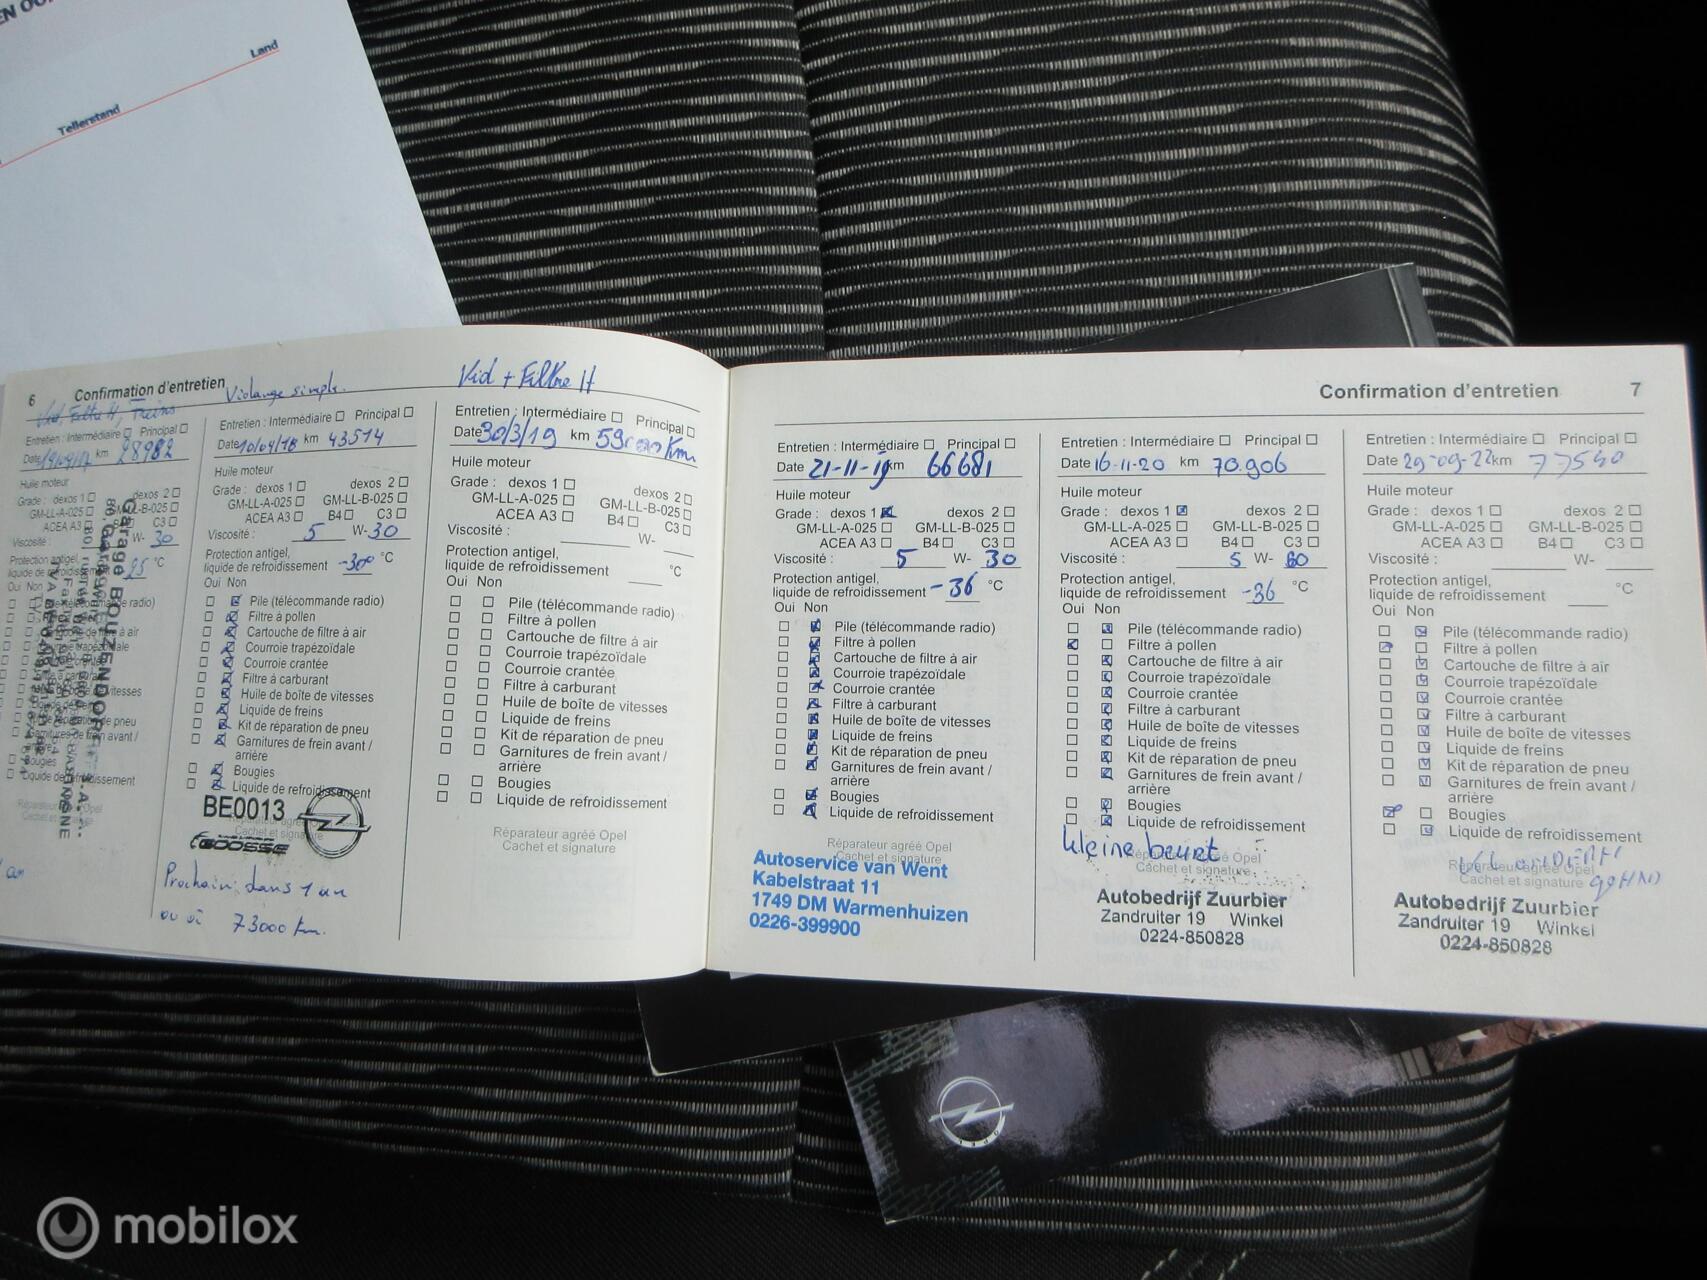 Land
Tellerstand
6 Confirmation d'entretien
Vid, Filtre H, Freins
Entretien : Intermédiaire Principal
Date km 28982
Huile moteur
Grade : dexos 1 dexos 2
GM-LL-A-025 GM-LL-B-025
ACEA A3 B4 C3
Viscosité : W- 30
Protection antigel,
liquide de refroidissement -25 °C
Oui Non
Garage BOUZENDORF S.A.
Liquide de refroidissement
Réparateur agréé Opel
Cachet et signature
Vidange simple.
Entretien : Intermédiaire Principal
Date 10/04/18 km 43514
Huile moteur
Grade : dexos 1 dexos 2
GM-LL-A-025 GM-LL-B-025
ACEA A3 B4 C3
Viscosité : 5 W- 30
Protection antigel,
liquide de refroidissement -30° °C
Oui Non
Pile (télécommande radio)
Filtre à pollen
Cartouche de filtre à air
Courroie trapézoïdale
Courroie crantée
Filtre à carburant
Huile de boîte de vitesses
Liquide de freins
Kit de réparation de pneu
Garnitures de frein avant /
arrière
Bougies
Liquide de refroidissement
BE0013
Goosse
Prochain: dans 1 an
ou à 73000 km.
Vid + Filtre H
Entretien : Intermédiaire Principal
Date 30/3/19 km 59000 Km
Huile moteur
Grade : dexos 1 dexos 2
GM-LL-A-025 GM-LL-B-025
ACEA A3 B4 C3
Viscosité : W-
Protection antigel,
liquide de refroidissement °C
Oui Non
Pile (télécommande radio)
Filtre à pollen
Cartouche de filtre à air
Courroie trapézoïdale
Courroie crantée
Filtre à carburant
Huile de boîte de vitesses
Liquide de freins
Kit de réparation de pneu
Garnitures de frein avant /
arrière
Bougies
Liquide de refroidissement
Réparateur agréé Opel
Cachet et signature
Confirmation d'entretien 7
Entretien : Intermédiaire Principal
Date 21-11-19 km 66681
Huile moteur
Grade : dexos 1 dexos 2
GM-LL-A-025 GM-LL-B-025
ACEA A3 B4 C3
Viscosité : 5 W- 30
Protection antigel,
liquide de refroidissement -36 °C
Oui Non
Pile (télécommande radio)
Filtre à pollen
Cartouche de filtre à air
Courroie trapézoïdale
Courroie crantée
Filtre à carburant
Huile de boîte de vitesses
Liquide de freins
Kit de réparation de pneu
Garnitures de frein avant /
arrière
Bougies
Liquide de refroidissement
Réparateur agréé Opel
Cachet et signature
Autoservice van Went
Kabelstraat 11
1749 DM Warmenhuizen
0226-399900
Entretien : Intermédiaire Principal
Date 16-11-20 km 70.906
Huile moteur
Grade : dexos 1 dexos 2
GM-LL-A-025 GM-LL-B-025
ACEA A3 B4 C3
Viscosité : 5 W- 30
Protection antigel,
liquide de refroidissement -36 °C
Oui Non
Pile (télécommande radio)
Filtre à pollen
Cartouche de filtre à air
Courroie trapézoïdale
Courroie crantée
Filtre à carburant
Huile de boîte de vitesses
Liquide de freins
Kit de réparation de pneu
Garnitures de frein avant /
arrière
Bougies
Liquide de refroidissement
kleine beurt
Réparateur agréé Opel
Cachet et signature
Autobedrijf Zuurbier
Zandruiter 19 Winkel
0224-850828
Entretien : Intermédiaire Principal
Date 29-09-22 km 77540
Huile moteur
Grade : dexos 1 dexos 2
GM-LL-A-025 GM-LL-B-025
ACEA A3 B4 C3
Viscosité : W-
Protection antigel,
liquide de refroidissement °C
Oui Non
Pile (télécommande radio)
Filtre à pollen
Cartouche de filtre à air
Courroie trapézoïdale
Courroie crantée
Filtre à carburant
Huile de boîte de vitesses
Liquide de freins
Kit de réparation de pneu
Garnitures de frein avant /
arrière
Bougies
Liquide de refroidissement
Réparateur agréé Opel
Cachet et signature
Autobedrijf Zuurbier
Zandruiter 19 Winkel
0224-850828
OPEL
mobilox